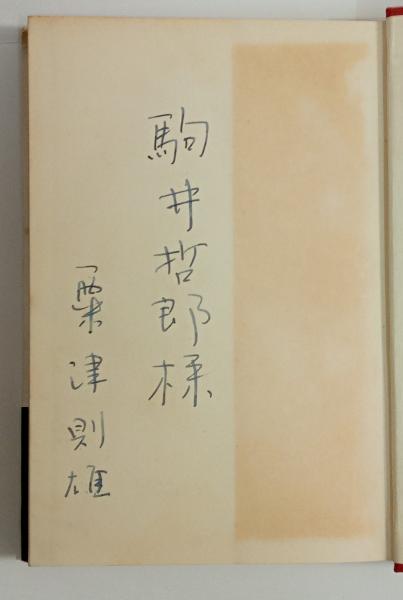 駒井哲郎様
粟津則雄